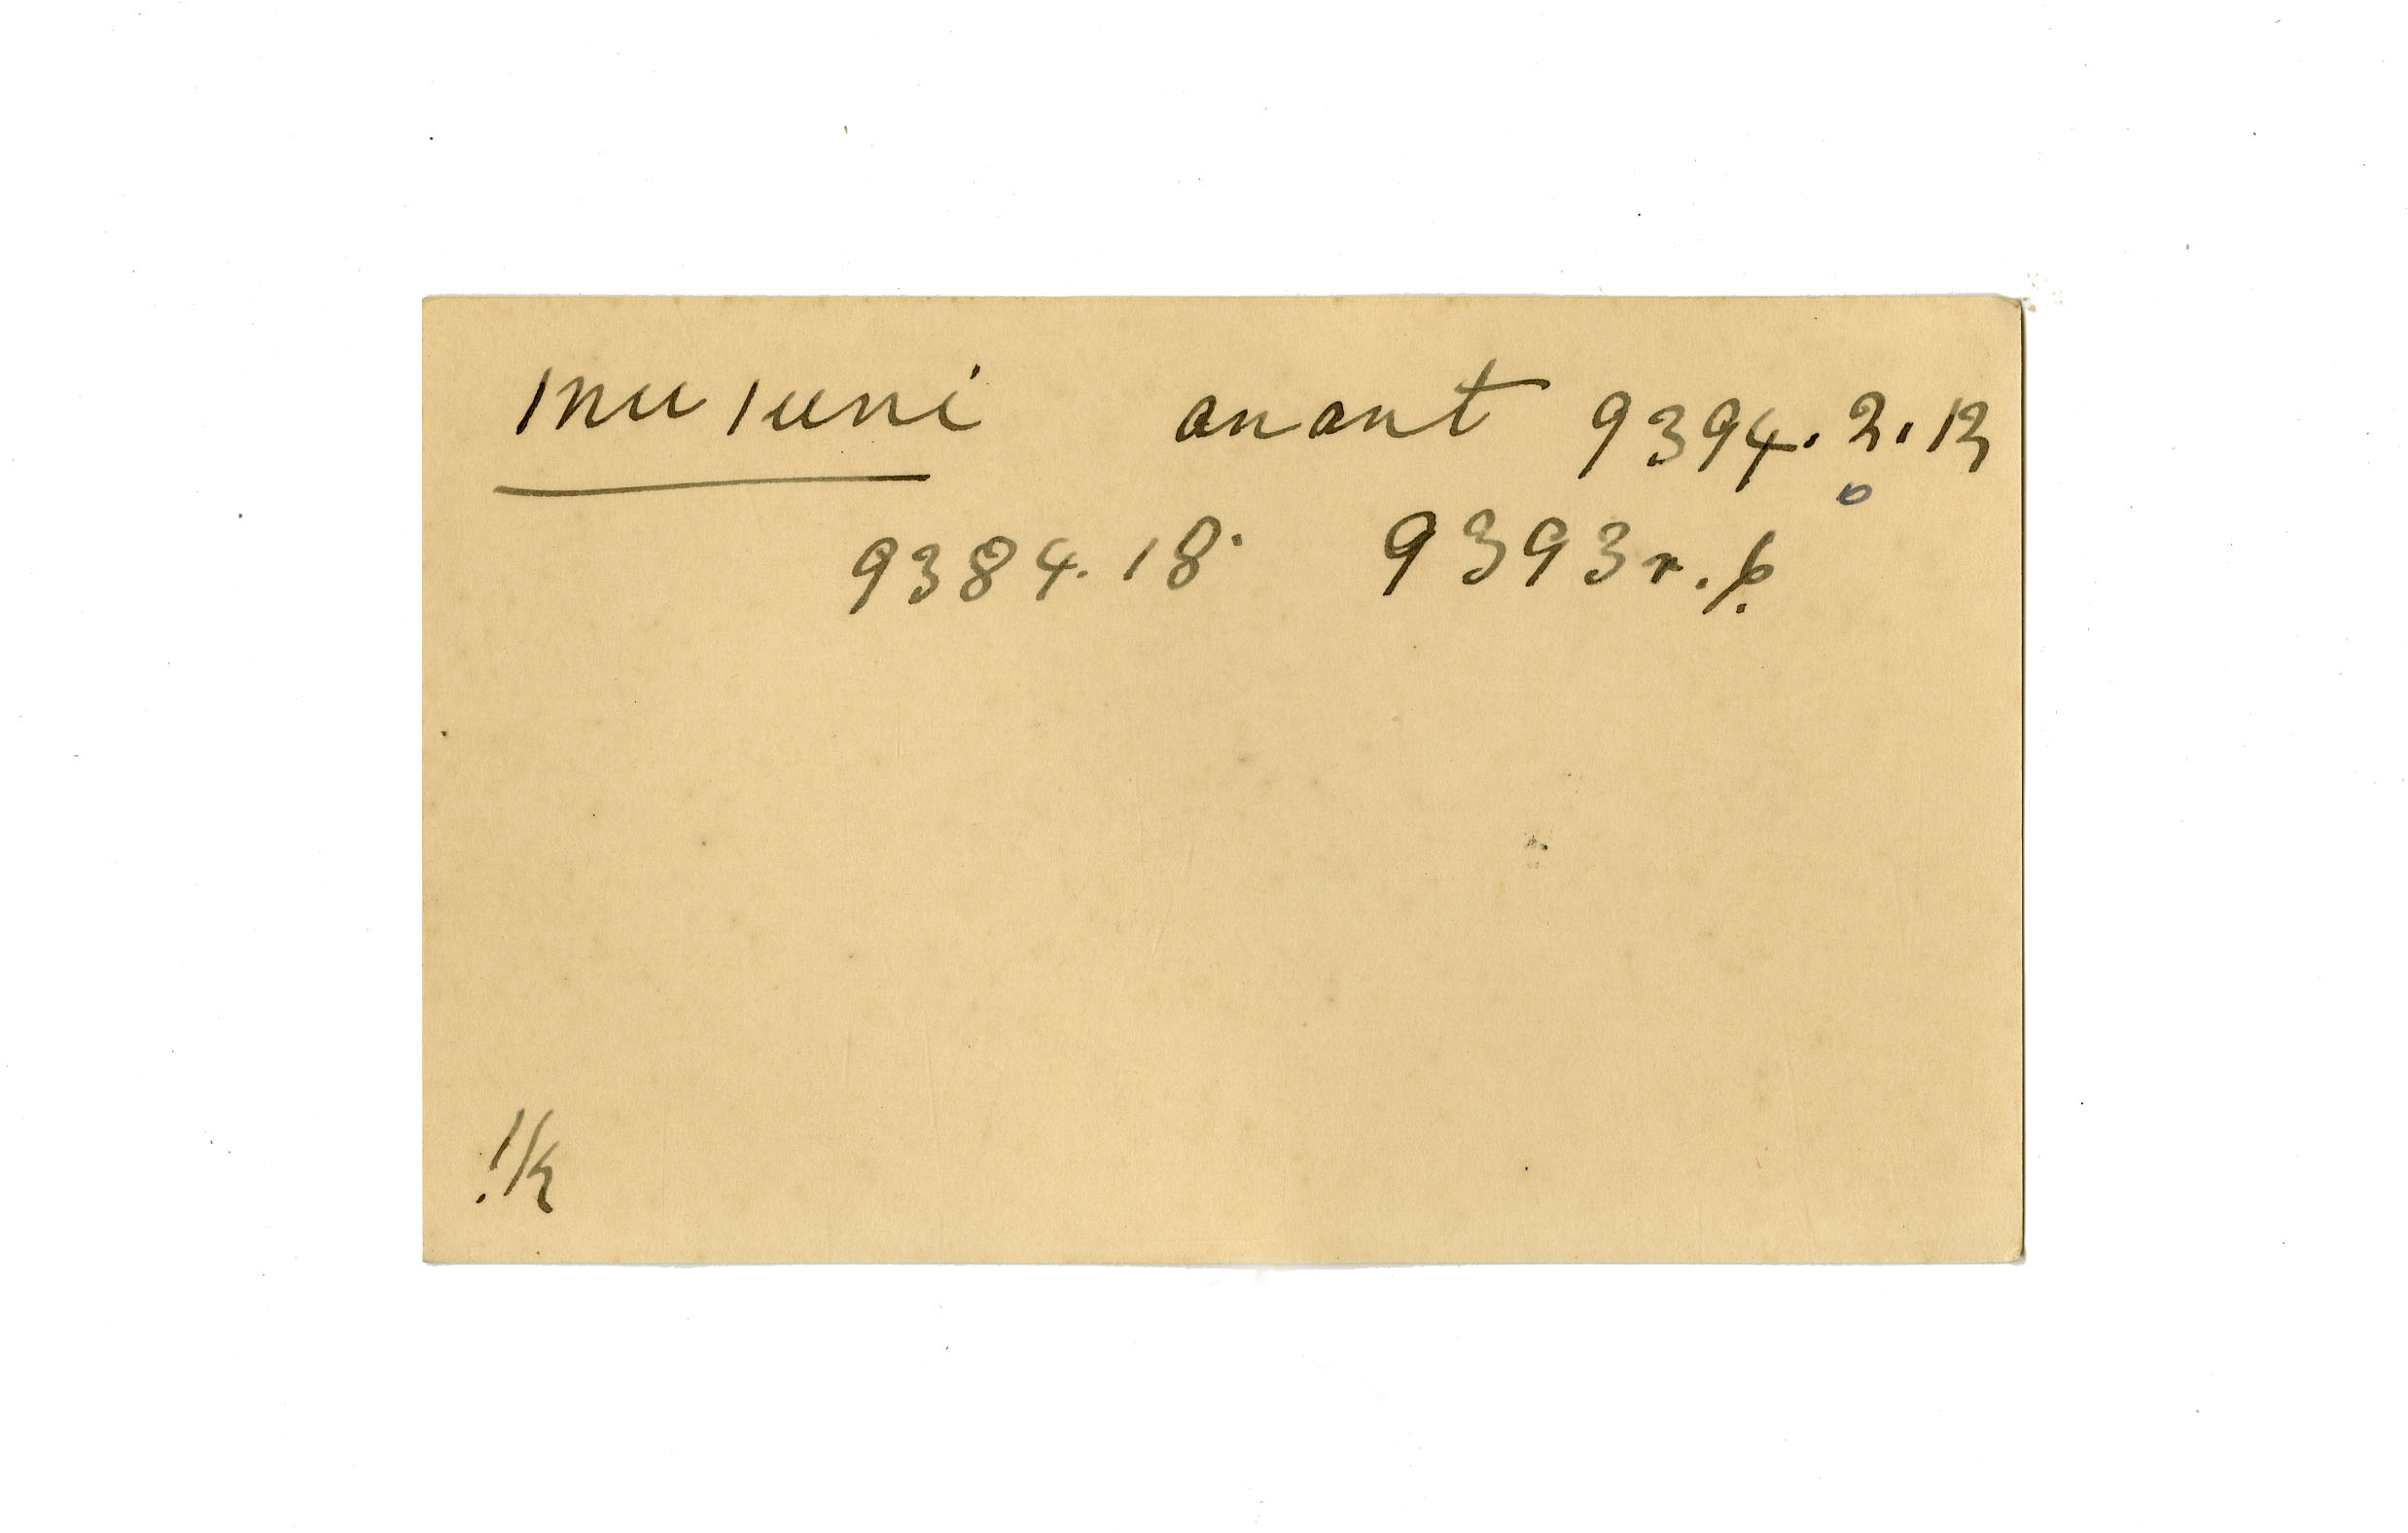 ǀnu ǀuni anant 9394.2.13
9384.18. 9393r.p.
!k